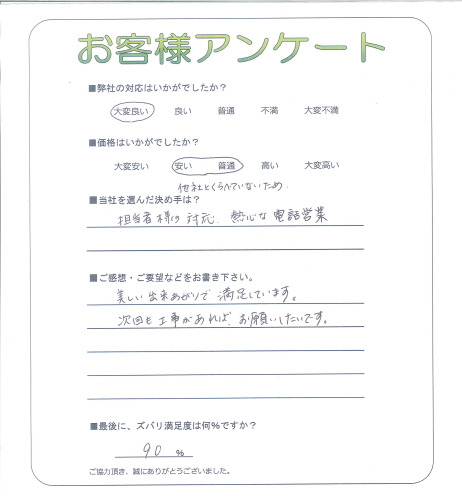 お客様アンケート
■弊社の対応はいかがでしたか？
大変良い 良い 普通 不満 大変不満
■価格はいかがでしたか？
大変安い 安い 普通 高い 大変高い
他社とくらべていないため.
■当社を選んだ決め手は？
担当者様の対応. 熱心な電話営業
■ご感想・ご要望などをお書き下さい。
美しい出来あがりで満足しています。
次回も工事があれば、お願いしたいです。
■最後に、ズバリ満足度は何%ですか？
90 %
ご協力頂き、誠にありがとうございました。